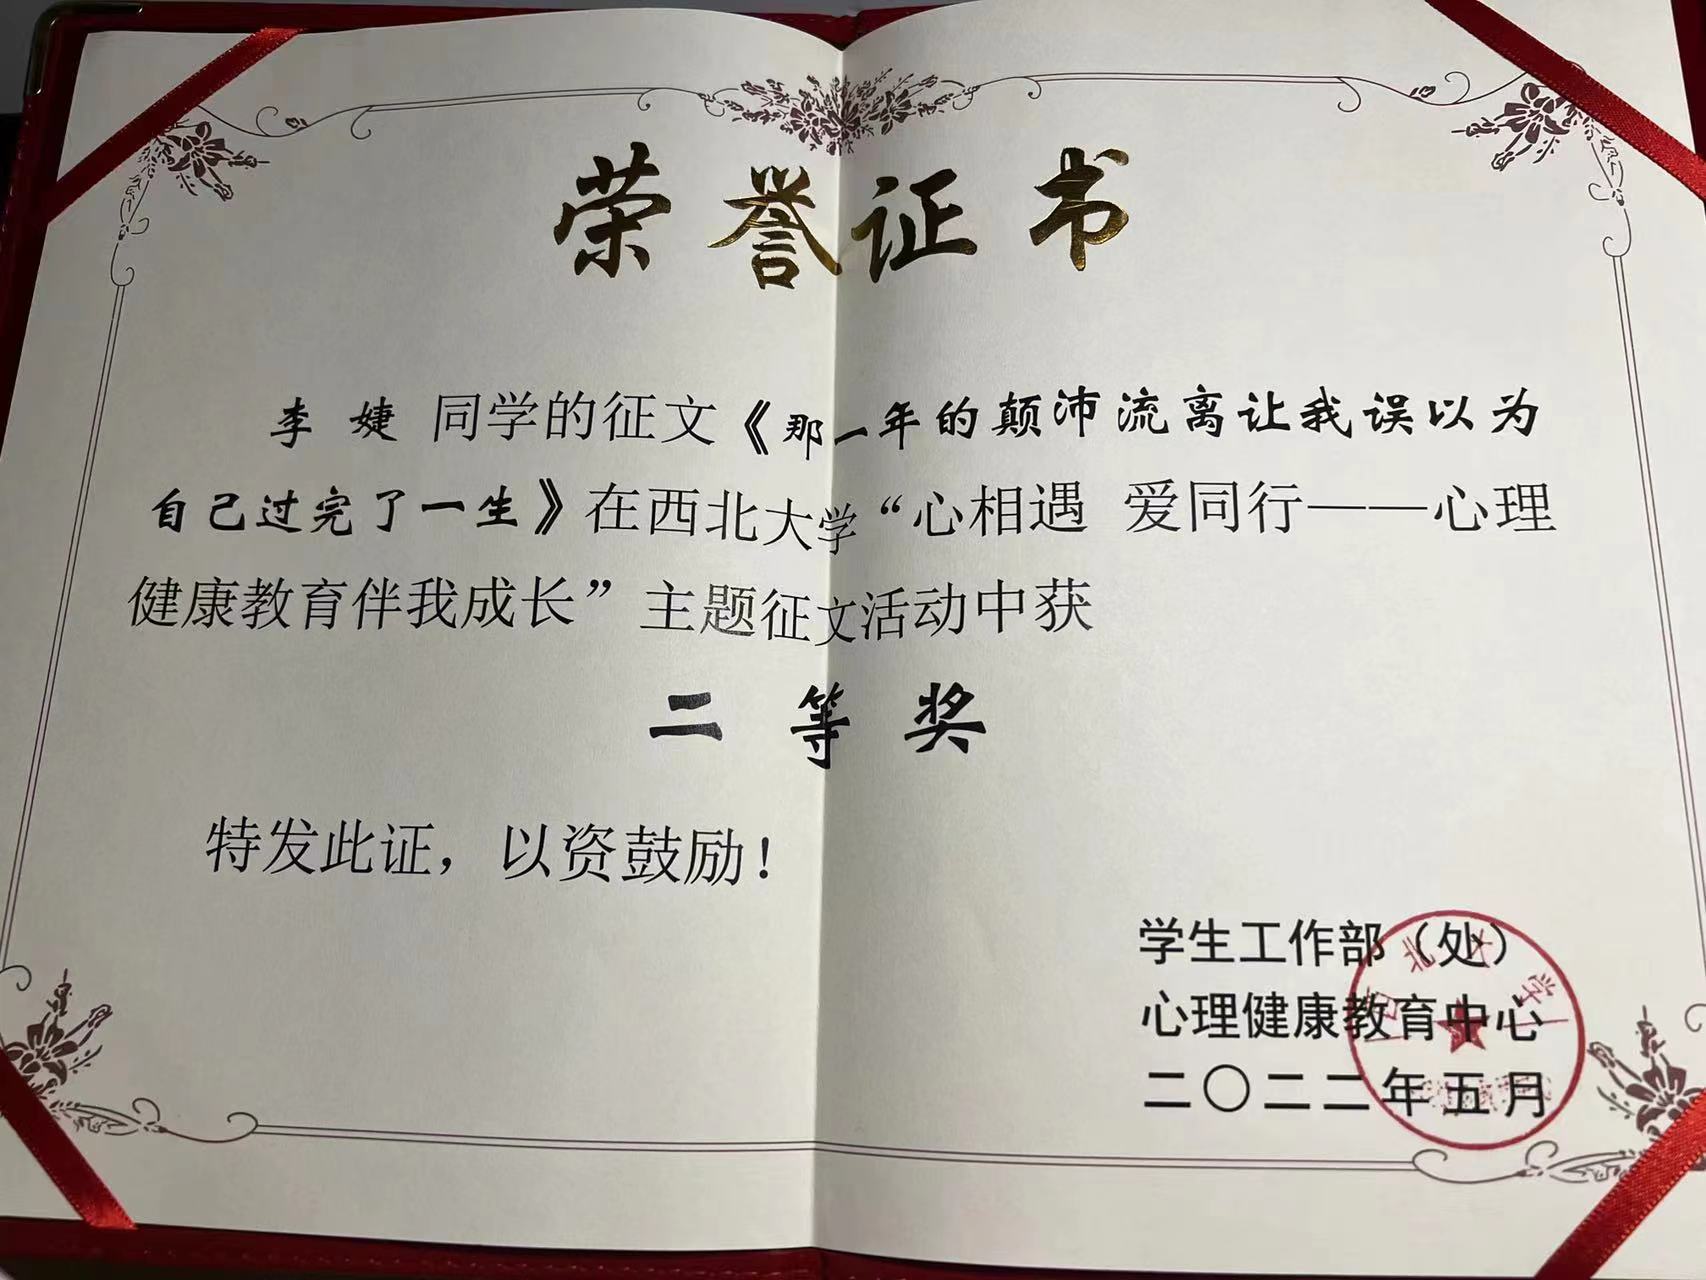 荣誉证书
李婕 同学的征文《那一年的颠沛流离让我误以为
自己过完了一生》在西北大学“心相遇 爱同行——心理
健康教育伴我成长”主题征文活动中获
二等奖
特发此证，以资鼓励！
学生工作部（处）
心理健康教育中心
二〇二二年五月
西北大学